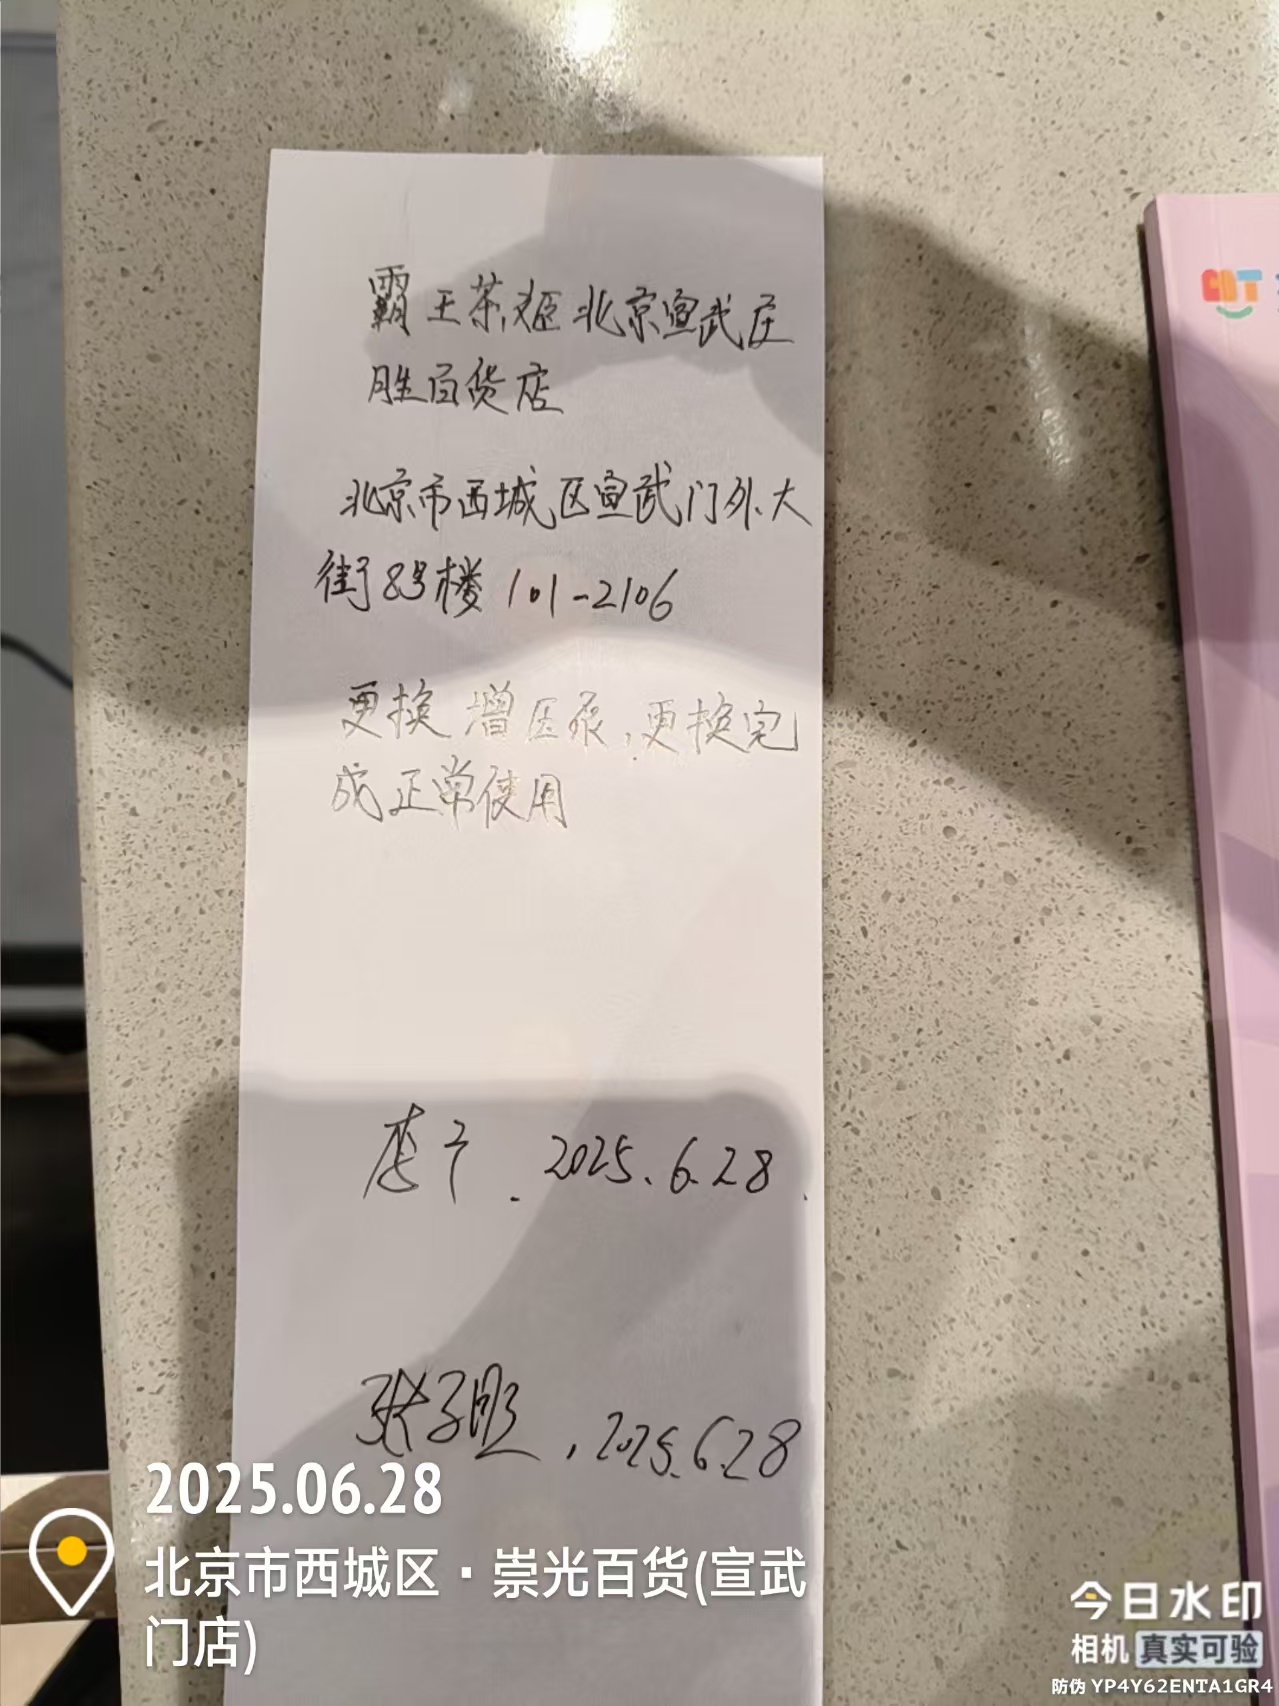 霸王茶姬北京宣武庄
胜百货店
北京市西城区宣武门外大
街8号楼101-2106
更换增压泵,更换完
成正常使用
2025.6.28
张子熙,2025.6.28
2025.06.28
北京市西城区·崇光百货(宣武
门店)
今日水印
相机 真实可验
防伪 YP4Y62ENTA1GR4